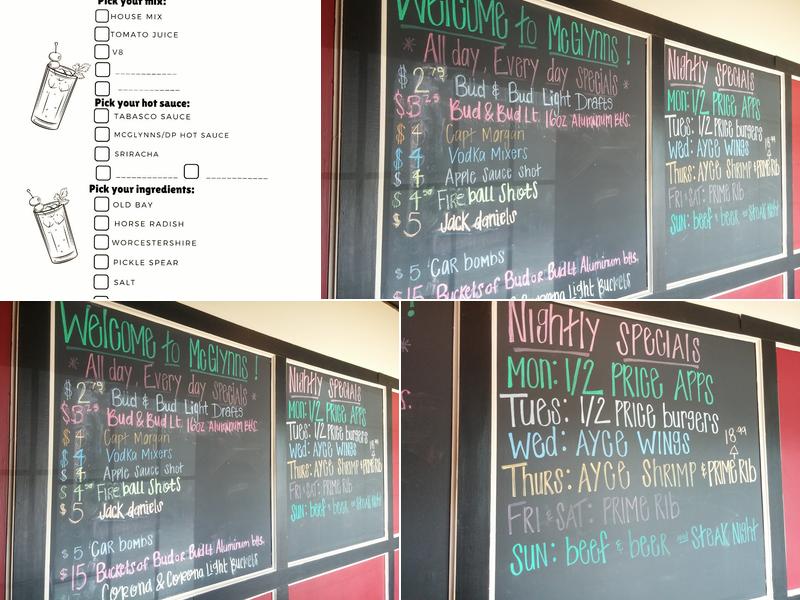 Pick your mix:
HOUSE MIX
TOMATO JUICE
V8
Pick your hot sauce:
TABASCO SAUCE
MCGLYNNS/DP HOT SAUCE
SRIRACHA
Pick your ingredients:
OLD BAY
HORSE RADISH
WORCESTERSHIRE
PICKLE SPEAR
SALT
Welcome to McGlynns !
* All day, Every day specials *
$ 2.75 Bud & Bud Light Drafts
$3.25 Bud & Bud Lt. 16oz Aluminum Btls.
$ 4 Capt Morgan
$ 4 Vodka Mixers
$ 4 Apple Sauce Shot
$ 4.50 Fireball Shots
$ 5 Jack daniels
$ 5 Car bombs
$15 Buckets of Bud or Bud Lt Aluminum btls.
Corona Light Buckets
Nightly Specials
Mon: 1/2 PRICE APPS
Tues: 1/2 PRICE burgers
Wed: AYCE WINGS
18.99
Thurs: AYCE Shrimp & PRIME RIB
FRI & SAT: PRIME RIB
Sun: beef & beer and Steak Night
Welcome to McGlynns !
* All day, Every day specials *
$ 2.75 Bud & Bud Light Drafts
$3.25 Bud & Bud Lt. 16oz Aluminum Btls.
$ 4 Capt Morgan
$ 4 Vodka Mixers
$ 4 Apple Sauce Shot
$ 4.50 Fireball Shots
$ 5 Jack daniels
$ 5 Car bombs
$15 Buckets of Bud or Bud Lt Aluminum btls.
Corona & Corona Light Buckets
Nightly Specials
Mon: 1/2 PRICE APPS
Tues: 1/2 PRICE burgers
Wed: AYCE WINGS
18.99
Thurs: AYCE Shrimp & PRIME RIB
FRI & SAT: PRIME RIB
Sun: beef & beer and Steak Night
Nightly SPECIALS
Mon: 1/2 PRICE APPS
Tues: 1/2 PRICE burgers
Wed: AYCE WINGS
18.99
Thurs: AYCE Shrimp & PRIME RIB
FRI & SAT: PRIME RIB
Sun: beef & beer and Steak Night